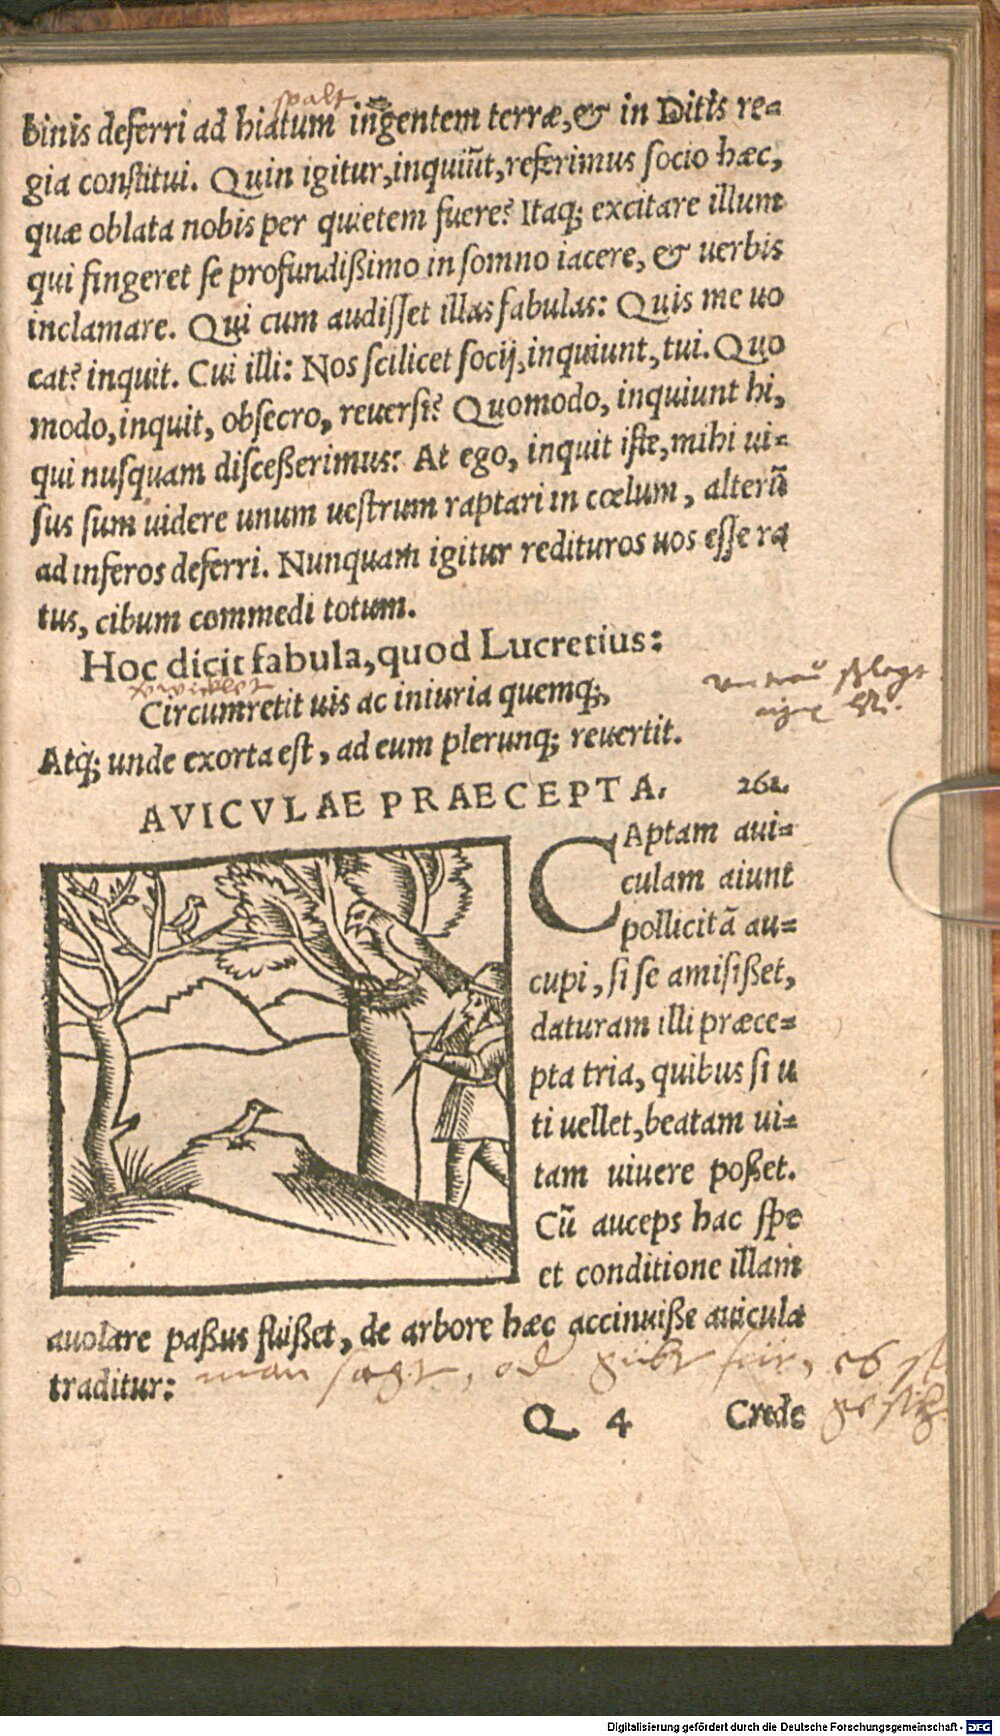 spalt
binis deferri ad hiatum ingentem terræ, & in Ditis re-
gia constitui. Quin igitur, inquiũt, referimus socio hæc,
quæ oblata nobis per quietem fuere? Itaq; excitare illum
qui fingeret se profundißimo in somno iacere, & uerbis
inclamare. Qui cum audisset illas fabulas: Quis me uo
cat? inquit. Cui illi: Nos scilicet socij, inquiunt, tui. Quo
modo, inquit, obsecro, reuersi? Quomodo, inquiunt hi,
qui nusquam disceßerimus? At ego, inquit iste, mihi ui-
sus sum uidere unum uestrum raptari in cœlum, alterũ
ad inferos deferri. Nunquam igitur redituros uos esse ra
tus, cibum commedi totum.
Hoc dicit fabula, quod Lucretius:
Circumretit uis ac iniuria quemq;,
Atq; unde exorta est, ad eum plerunq; reuertit.
AVICVLAE PRAECEPTA. 261.
CAptam aui-
culam aiunt
pollicitã au-
cupi, si se amisißet,
daturam illi præce-
pta tria, quibus si u
ti uellet, beatam ui-
tam uiuere poßet.
Cũ auceps hac spe
et conditione illam
auolare paßus fuißet, de arbore hæc accinuiße auicula
traditur: man sagt,
Q 4 Crede
Digitalisierung gefördert durch die Deutsche Forschungsgemeinschaft - DFG